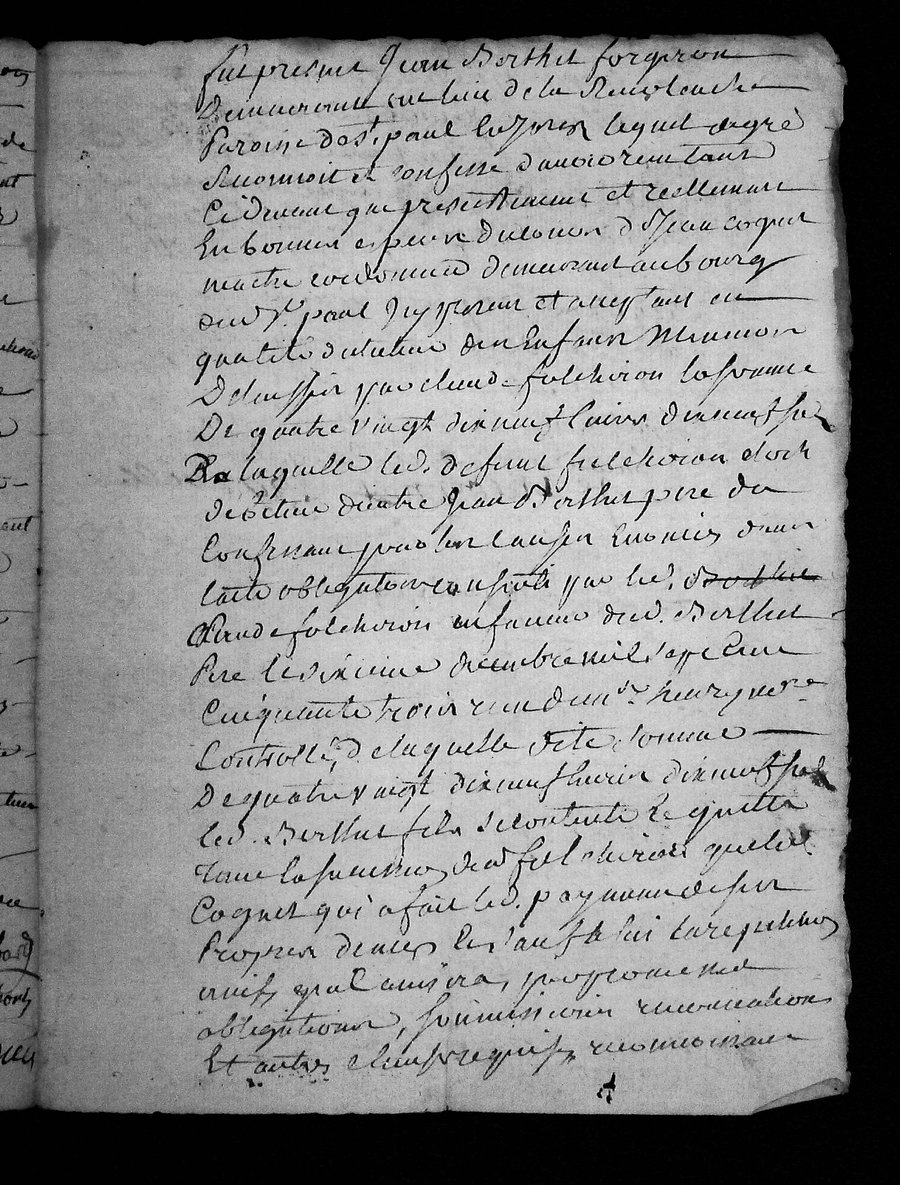 fut present Jean Berthet forgeron
Demeurant au lieu de la
Paroisse de st paul laquel de gré
Reconnoit et confesse d'avoir reçu tant
Cidevant que presentement et reellement
En bonnes espèces du cours de sr Jean coquet
maitre cordonnier demeurant au bourg
dud st paul et acceptant en
qualité de tuteur des Enfans Mineurs
Delaissés par claude folcheron la somme
De quatre vingt dix neuf livres dix neuf sols
De laquelle led. defunt folcheron etoit
debiteur dud Jean Berthet pere du
Confessant pour les causes Enoncées dans
lacte obligatoire consenti par led.
Claude folcheron en faveur dud. Berthet
Pere le sixieme decembre mil sept cent
Cinquante trois reçu de me henry nore
Controllé, de laquelle dite somme
De quatre vingt dix neuf livres dix neuf sols
led. Berthet fils se contente Et quitte
Tant la succession dud folcheron que led
Coquet qui a fait led. payement de ses
Propres deniers Et sauf à lui la repetition
ainsi qu'il avisera, par promesse
obligations, soumissions renonciations
Et autres clauses requises, reconnoissant